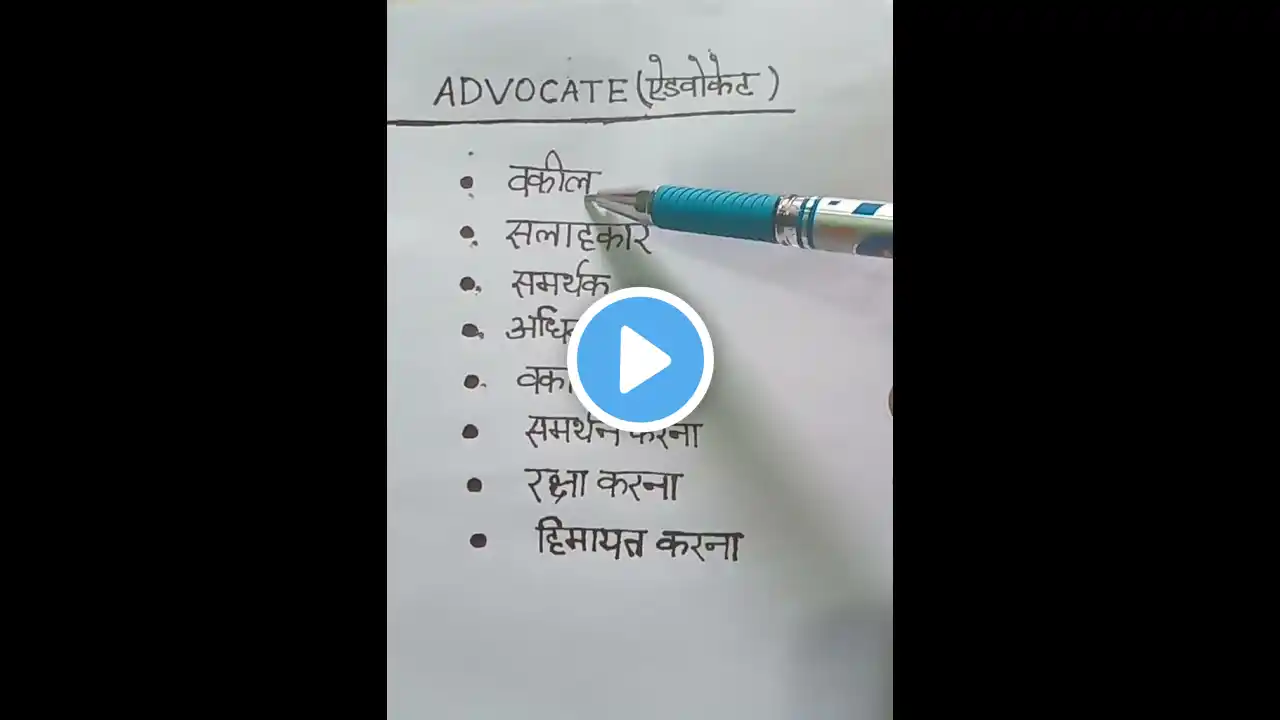 ADVOCATE (ऐडवोकेट)
• वकील
• सलाहकार
• समर्थक
•
•
• समर्थन करना
• रक्षा करना
• हिमायत करना